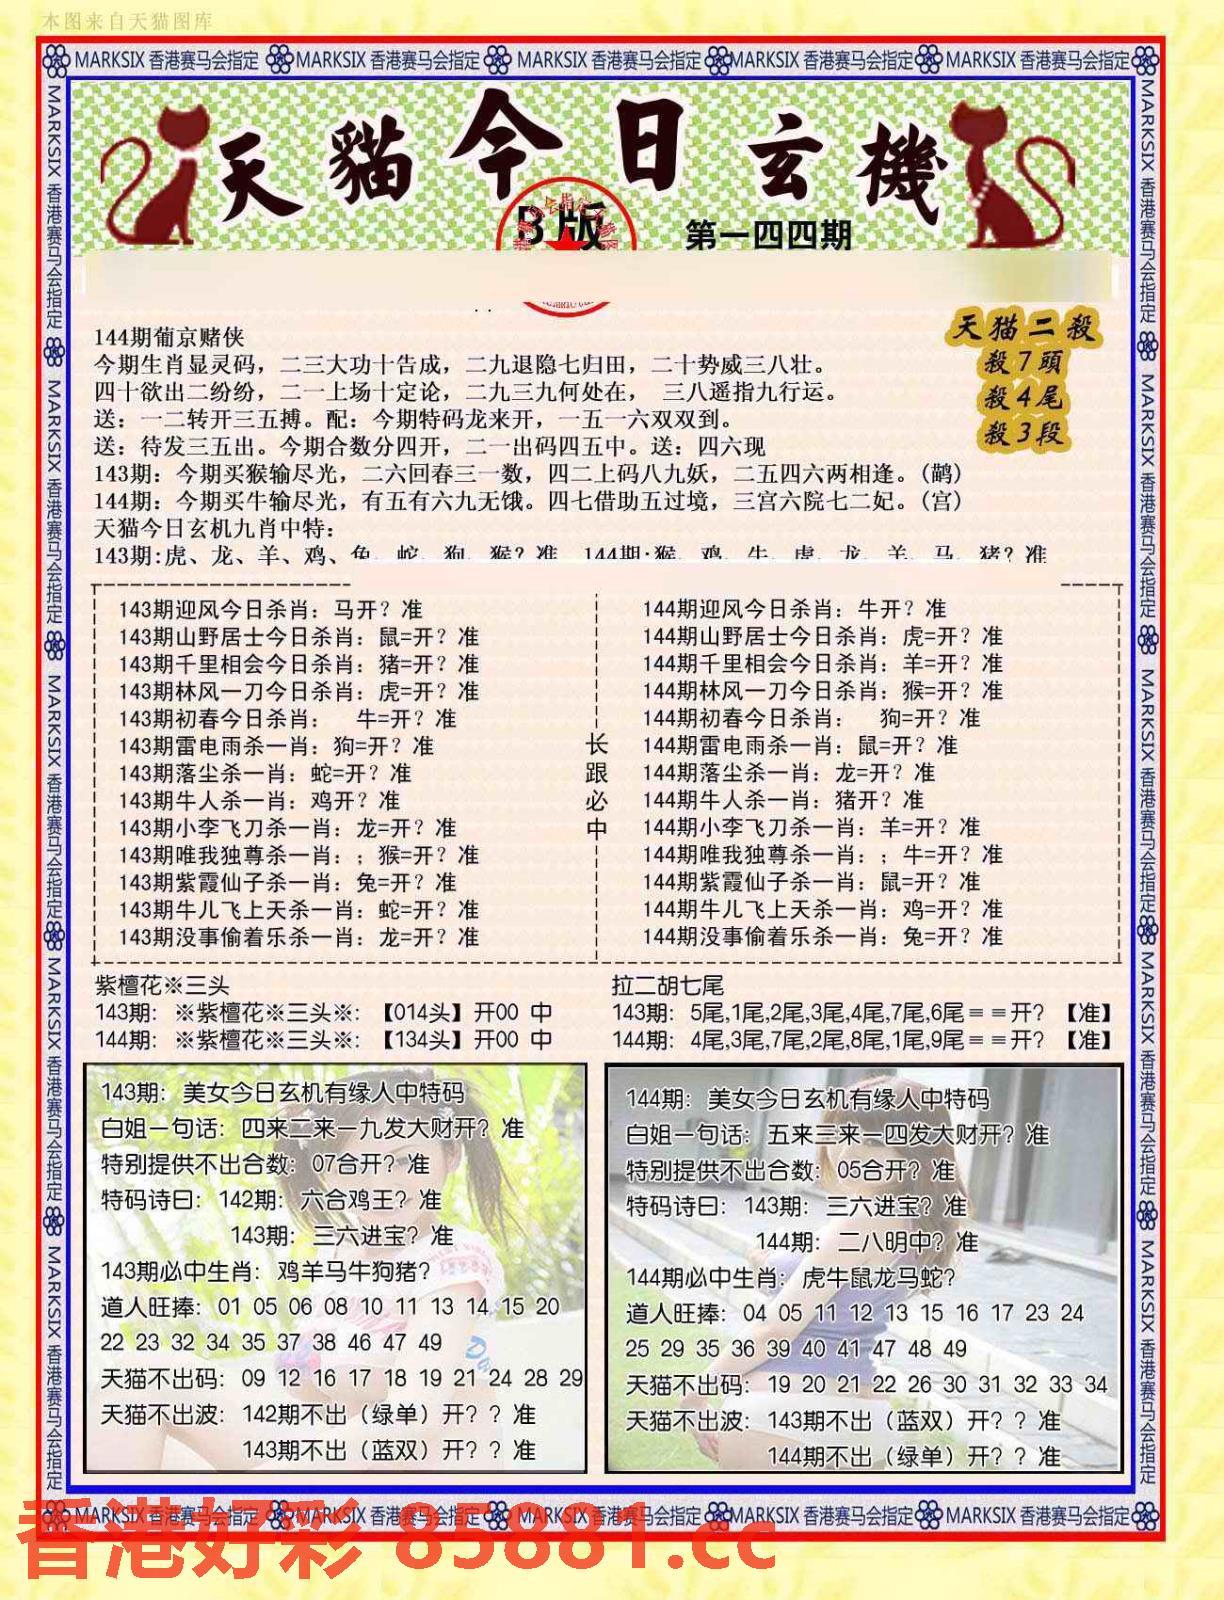 本图来自天猫图库
MARKSIX 香港赛马会指定 MARKSIX 香港赛马会指定 MARKSIX 香港赛马会指定 MARKSIX 香港赛马会指定 MARKSIX 香港赛马会指定
MARKSIX 香港赛马会指定 MARKSIX 香港赛马会指定 MARKSIX 香港赛马会指定 MARKSIX 香港赛马会指定 MARKSIX 香港赛马会指定
MARKSIX 香港赛马会指定 MARKSIX 香港赛马会指定 MARKSIX 香港赛马会指定 MARKSIX 香港赛马会指定 MARKSIX 香港赛马会指定
天貓今日玄機
B版
第一四四期
天猫二殺
殺7頭
殺4尾
殺3段
144期葡京赌侠
今期生肖显灵码，二三大功十告成，二九退隐七归田，二十势威三八壮。
四十欲出二纷纷，二一上场十定论，二九三九何处在， 三八遥指九行运。
送：一二转开三五搏。配：今期特码龙来开，一五一六双双到。
送：待发三五出。今期合数分四开，二一出码四五中。送：四六现
143期：今期买猴输尽光，二六回春三一数，四二上码八九妖，二五四六两相逢。（鹋）
144期：今期买牛输尽光，有五有六九无饿。四七借助五过境，三宫六院七二妃。（宫）
天猫今日玄机九肖中特：
143期:虎、龙、羊、鸡、兔、蛇、狗、猴？准 144期:猴、鸡、牛、虎、龙、羊、马、猪？准
143期迎风今日杀肖：马开？准
143期山野居士今日杀肖：鼠=开？准
143期千里相会今日杀肖：猪=开？准
143期林风一刀今日杀肖：虎=开？准
143期初春今日杀肖： 牛=开？准
143期雷电雨杀一肖：狗=开？准
143期落尘杀一肖：蛇=开？准
143期牛人杀一肖：鸡开？准
143期小李飞刀杀一肖：龙=开？准
143期唯我独尊杀一肖：；猴=开？准
143期紫霞仙子杀一肖：兔=开？准
143期牛儿飞上天杀一肖：蛇=开？准
143期没事偷着乐杀一肖：龙=开？准
长跟必中
144期迎风今日杀肖：牛开？准
144期山野居士今日杀肖：虎=开？准
144期千里相会今日杀肖：羊=开？准
144期林风一刀今日杀肖：猴=开？准
144期初春今日杀肖： 狗=开？准
144期雷电雨杀一肖：鼠=开？准
144期落尘杀一肖：龙=开？准
144期牛人杀一肖：猪开？准
144期小李飞刀杀一肖：羊=开？准
144期唯我独尊杀一肖：；牛=开？准
144期紫霞仙子杀一肖：鼠=开？准
144期牛儿飞上天杀一肖：鸡=开？准
144期没事偷着乐杀一肖：兔=开？准
紫檀花※三头
143期：※紫檀花※三头※：【014头】开00 中
144期：※紫檀花※三头※：【134头】开00 中
拉二胡七尾
143期：5尾,1尾,2尾,3尾,4尾,7尾,6尾＝＝开？【准】
144期：4尾,3尾,7尾,2尾,8尾,1尾,9尾＝＝开？【准】
143期：美女今日玄机有缘人中特码
白姐一句话：四来二来一九发大财开？准
特别提供不出合数：07合开？准
特码诗曰：142期：六合鸡王？准
143期：三六进宝？准
143期必中生肖：鸡羊马牛狗猪？
道人旺捧：01 05 06 08 10 11 13 14 15 20
22 23 32 34 35 37 38 46 47 49
天猫不出码：09 12 16 17 18 19 21 24 28 29
天猫不出波：142期不出（绿单）开？？准
143期不出（蓝双）开？？准
144期：美女今日玄机有缘人中特码
白姐一句话：五来三来一四发大财开？准
特别提供不出合数：05合开？准
特码诗曰：143期：三六进宝？准
144期：二八明中？准
144期必中生肖：虎牛鼠龙马蛇？
道人旺捧：04 05 11 12 13 15 16 17 23 24
25 29 35 36 39 40 41 47 48 49
天猫不出码：19 20 21 22 26 30 31 32 33 34
天猫不出波：143期不出（蓝双）开？？准
144期不出（绿单）开？？准
MARKSIX 香港赛马会指定 MARKSIX 香港赛马会指定 MARKSIX 香港赛马会指定 MARKSIX 香港赛马会指定 MARKSIX 香港赛马会指定
香港好彩 85881.cc